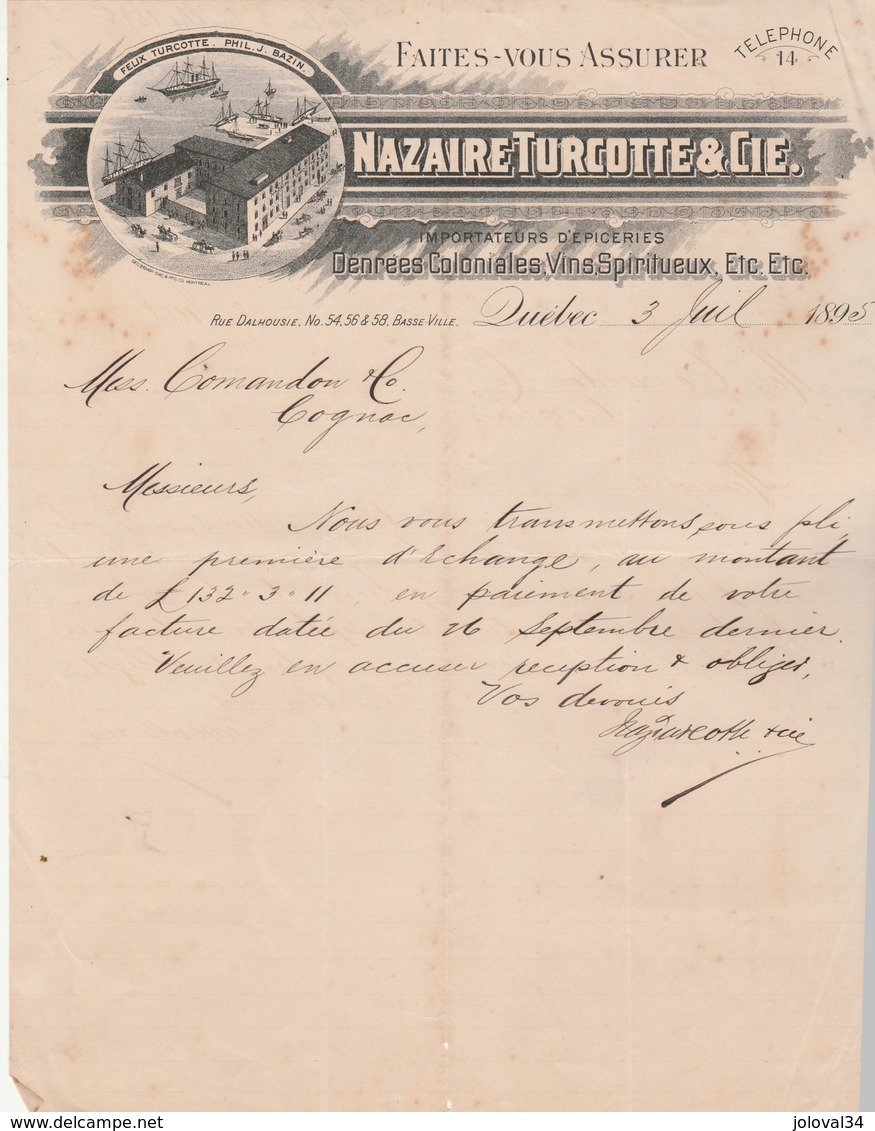 FELIX TURCOTTE. PHIL. J. BAZIN.
FAITES-VOUS ASSURER
TELEPHONE
14
NAZAIRE TURCOTTE & CIE.
IMPORTATEURS D'EPICERIES
Denrées Coloniales, Vins, Spiritueux, Etc. Etc.
RUE DALHOUSIE, No. 54, 56 & 58, BASSE VILLE.
Québec 3 Juil 1895
Mess. Comandon & Co.
Cognac,
Messieurs,
Nous vous transmettons, sous pli,
une première d'Echange, au montant
de £132 " 3 " 11 en paiement de votre
facture datée du 26 Septembre dernier.
Veuillez en accuser reception & obliger,
Vos devoués
Naz Turcotte & cie
delcampe.net
joloval34